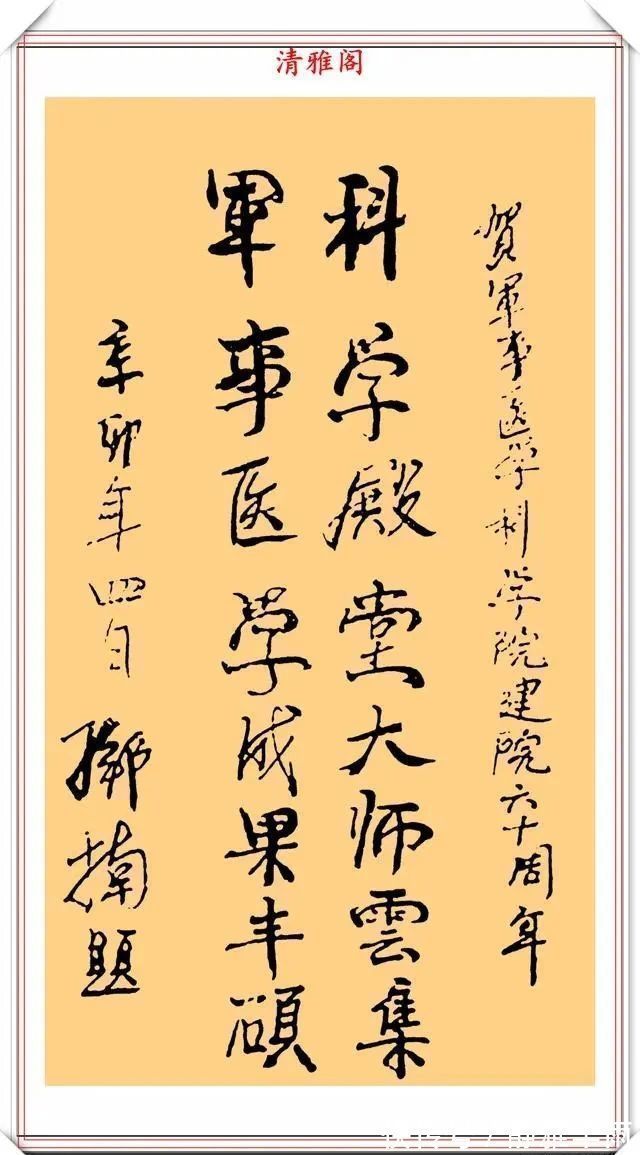 清雅阁
贺軍事医学科学院建院六十周年
科学殿堂大师雲集
軍事医学成果丰碩
辛卯年四月
鄧楠题